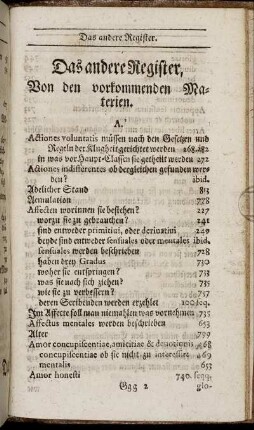 Das andere Register.
Das andere Register,
Von den vorkommenden Ma-
terien.
A.
Actiones voluntatis müssen nach den Gesetzen und
Regeln der Klugheit gerichtet werden 268.282
in was vor Haupt-Classen sie getheilt werden 272
Actiones indifferentes ob dergleichen gefunden wer-
den? ibid.
Adelicher Stand 813
Aemulation 728
Affecten worinnen sie bestehen? 227
worzu sie zu gebrauchen? 241
sind entweder primitiui, oder deriuatiui 249
beyde sind entweder sensuales oder mentales ibid.
sensuales werden beschrieben 728
haben drey Gradus 730
woher sie entspringen? 733
was sie nach sich ziehen? 735
wie sie zu verbessern? 757
deren Scribenten werden erzehlet 100 seq.
Im Affecte soll man niemahls was vornehmen 737
Affectus mentales werden beschrieben 653
Alter 799
Amor concupiscentiae, amicitiae & deuotionis 468
concupiscentiae ob sie nicht zu interessirt 469
mentalis 653
Amor honesti 740. seqq.
Ggg 2
glo-